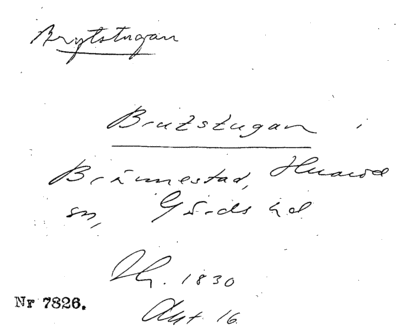 Brytstugan
Brutsstugan i
Brännestad, Huaröd
sn, Gärds hd
Lh. 1830
Akt. 16
Nr 7826.